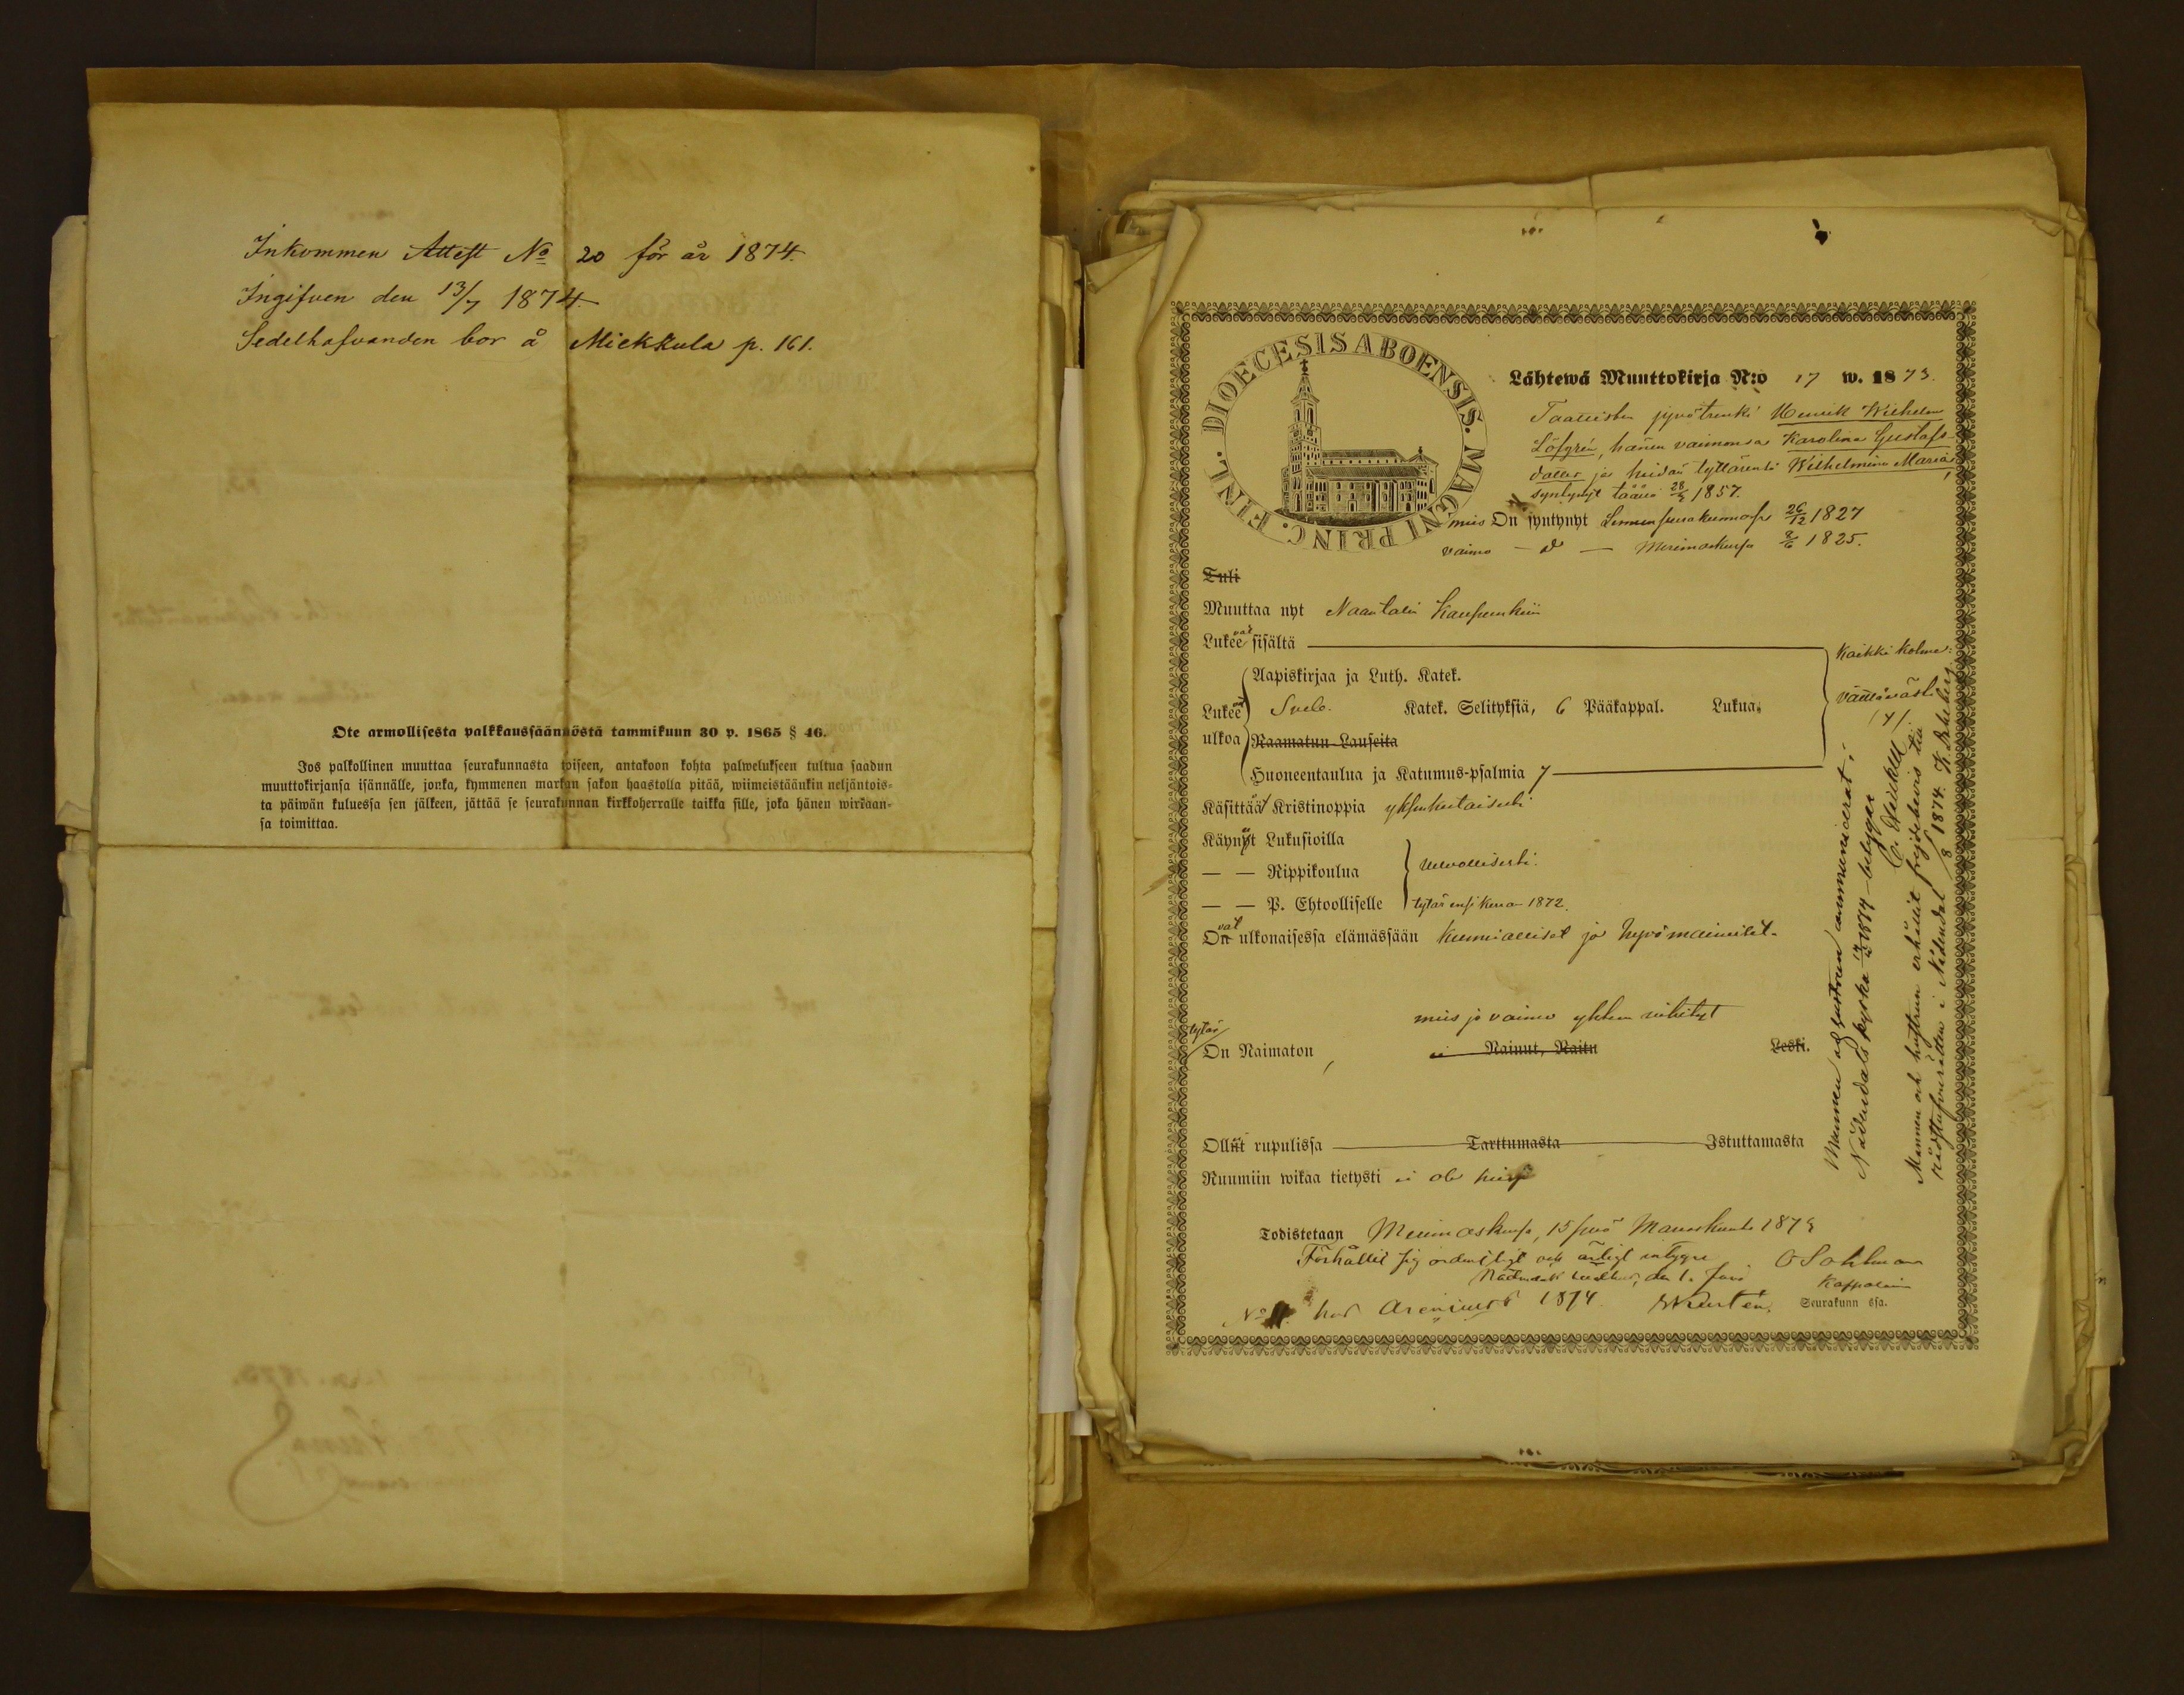 Inkommen Attest No 20 för år 1874.
Ingifven den 13/7 1874.
Sedelhafvanden bor å Miekkula p. 161.
Ote armollisesta palkkaussäännöstä tammikuun 30 p. 1865 § 46.
Jos palkollinen muuttaa seurakunnasta toiseen, antakoon kohta palwelukseen tultua saadun
muuttokirjansa isännälle, jonka, kymmenen markan sakon haastolla pitää, wiimeistäänkin neljäntois=
ta päiwän kuluessa sen jälkeen, jättää se seurakunnan kirkkoherralle taikka sille, joka hänen wirkaan=
sa toimittaa.
DIOECESIS ABOENSIS. MAGNI PRINC. FINL.
Lähtewä Muuttokirja N:o 17 w. 1873.
Henrik Wilhelm
Löfgrén, hänen vaimonsa Karolina Gustafs-
doller ja heidän tyttärensä Wilhelmina Maria,
syntynyt täällä 28/5 1857.
mies On syntynyt 26/12 1827
vaimo — d — Merimaskussa 8/6 1825.
Tuli
Muuttaa nyt Naantalin Kaupunkiin
Lukeevat sisältä
Kaikki kolme
Aapiskirjaa ja Luth. Katek.
Lukee Katek. Selityksiä, 6 Pääkappal. Lukua,
ulkoa Raamatun Lauseita
Huoneentaulua ja Katumus-psalmia 7
Käsittää Kristinoppia yksinkertaisesti
Käynyt Lukusioilla
— — Rippikoulua
— — P. Ehtoolliselle tytär ensi kerran 1872.
On vat ulkonaisessa elämässään kunnialliset ja hyvämaineiset.
mies ja vaimo yhteen vihityt
tytär
On Naimaton Nainut, Naitu Leski.
Ollut rupulissa Tarttumasta Istuttamasta
Ruumiin wikaa tietysti ei ole
Todistetaan Merimaskussa, 15 Marraskuuta 1873
Förhållit sig ordentligt och ärligt intygar O Sahlman
den 1. Juni Kappalainen
hos Arenius 1874. Seurakunn ssa.
Mannen och hustrun annuncerat i
Nådendals kyrka 1874 betygar
Mannen och hustrun erhållit frejdebevis
Rådstufvurätten i Nådendal 1874.